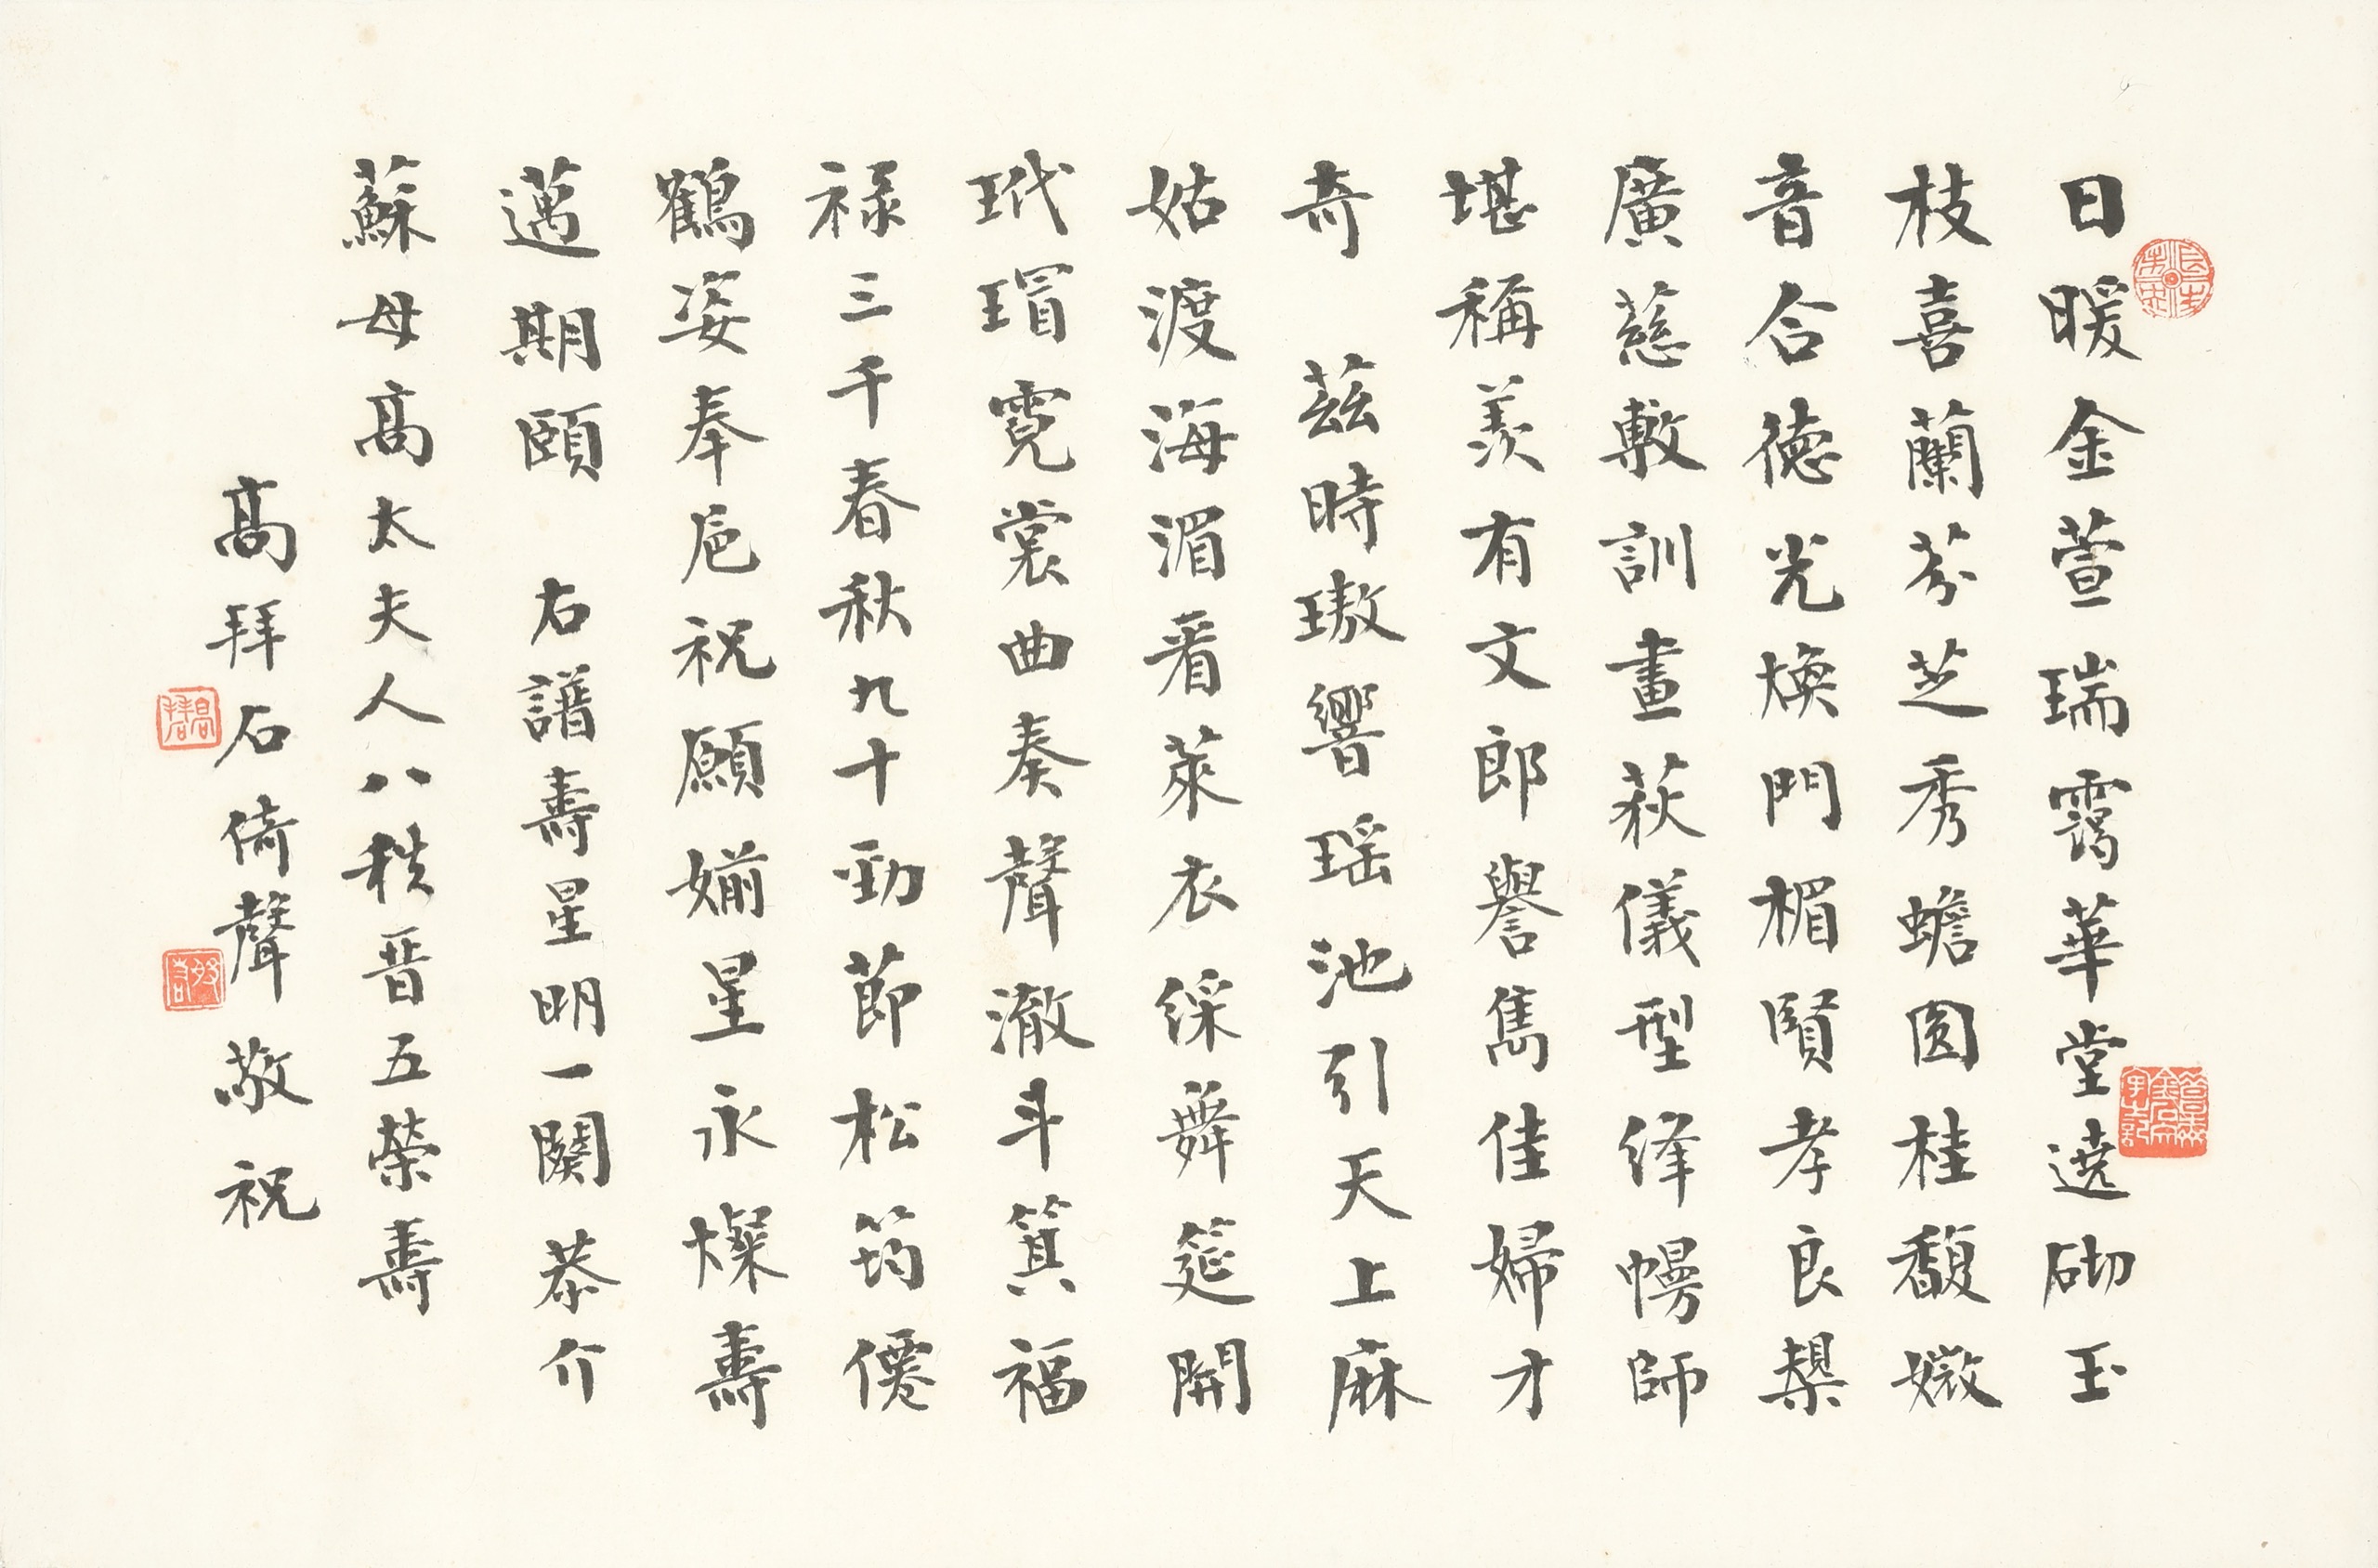 日暖金萱瑞靄華堂遶砌玉
枝喜蘭芬芝秀蟾圓桂馥媺
音合德光煥門楣賢孝良榘
廣慈敷訓畫荻儀型絳幔師
堪稱羨有文郎譽雋佳婦才
奇 茲時璈響瑤池引天上麻
姑渡海湄看萊衣綵舞筵開
玳瑁霓裳曲奏聲澈斗箕福
祿三千春秋九十勁節松筠僊
鶴姿奉卮祝願媊星永燦壽
邁期頤 右譜壽星明一闋恭介
蘇母高太夫人八秩晉五榮壽
高拜石倚聲敬祝